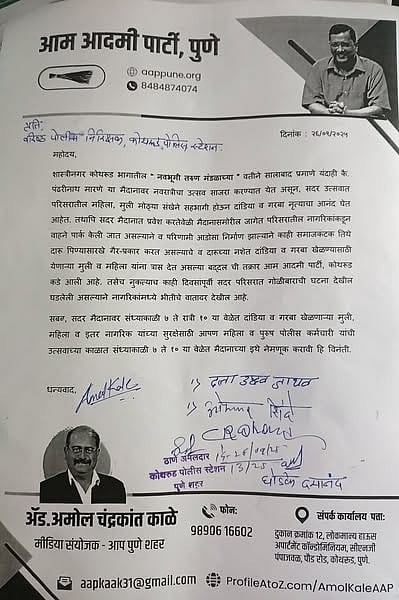 आम आदमी पार्टी, पुणे
aappune.org
8484874074
प्रति,
वरिष्ठ पोलीस निरिक्षक, कोथरुड पोलिस स्टेशन.
दिनांक : २६/०९/२०२५
महोदय,
शास्त्रीनगर कोथरूड भागातील " नवभूमी तरुण मंडळाच्या " वतीने सालाबाद प्रमाणे यंदाही कै.
पंढरीनाथ मारणे या मैदानावर नवरात्रीचा उत्सव साजरा करण्यात येत असून, सदर उत्सवात
परिसरातील महिला, मुली मोठ्या संख्येने सहभागी होऊन दांडिया व गरबा नृत्याचा आनंद घेत
आहेत. तथापि सदर मैदानात प्रवेश करतेवेळी मैदानासमोरील जागेत परिसरातील नागरिकांकडून
वाहने पार्क केली जात असल्याने व परिणामी आडोसा निर्माण झाल्याने काही समाजकटक तिथे
दारू पिण्यासारखे गैर-प्रकार करत असल्याचे व दारूच्या नशेत दांडिया व गरबा खेळण्यासाठी
येणाऱ्या मुली व महिलांना यांना त्रास देत असल्या बद्दल ची तक्रार आम आदमी पार्टी, कोथरूड
कडे आली आहे. तसेच नुकत्याच काही दिवसांपूर्वी सदर परिसरात गोळीबाराची घटना देखील
घडलेली असल्याने नागरिकांमध्ये भीतीचे वातावर देखील आहे.
सबब, सदर मैदानावर संध्याकाळी ७ ते रात्री १० या वेळेत दांडिया व गरबा खेळणाऱ्या मुली,
महिला व इतर नागरिक यांच्या सुरक्षेसाठी आपण महिला व पुरूष पोलीस कर्मचारी यांची
उत्सवाच्या काळात संध्याकाळी ७ ते १० या वेळेत मैदानाच्या इथे नेमणूक करावी हि विनंती.
धन्यवाद,
AmolKale
ठाणे अंमलदार
कोथरुड पोलीस स्टेशन
पुणे शहर
ॲड.अमोल चंद्रकांत काळे
मीडिया संयोजक - आप पुणे शहर
फोन:
98906 16602
संपर्क कार्यालय पत्ता:
दुकान क्रमांक 12, लोकमान्य हाऊस
अपार्टमेंट कॉन्डोमिनियम, सीएनजी
पंपाजवळ, पौड रोड, कोथरूड, पुणे.
aapkaak31@gmail.com
ProfileAtoZ.com/AmolKaleAAP